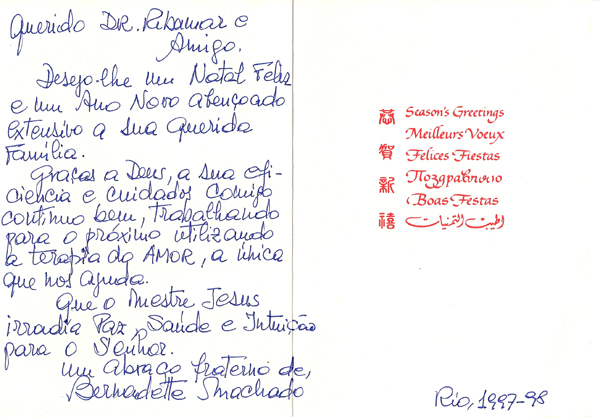 Querido DR. Ribamar e
Amigo.
Desejo-lhe um Natal Feliz
e um Ano Novo abençoado
extensivo a sua querida
Família.
Graças a Deus, a sua efi-
ciência e cuidados comigo
continuo bem, trabalhando
para o próximo utilizando
a terapia do AMOR, a única
que nos ajuda.
Que o Mestre Jesus
irradia Paz, Saúde e Intuição
para o Senhor.
Um abraço fraterno de,
Bernadette Machado
恭賀新禧
Season's Greetings
Meilleurs Voeux
Felices Fiestas
Поздравляю
Boas Festas
اطيب التمنيات
Rio, 1997-98